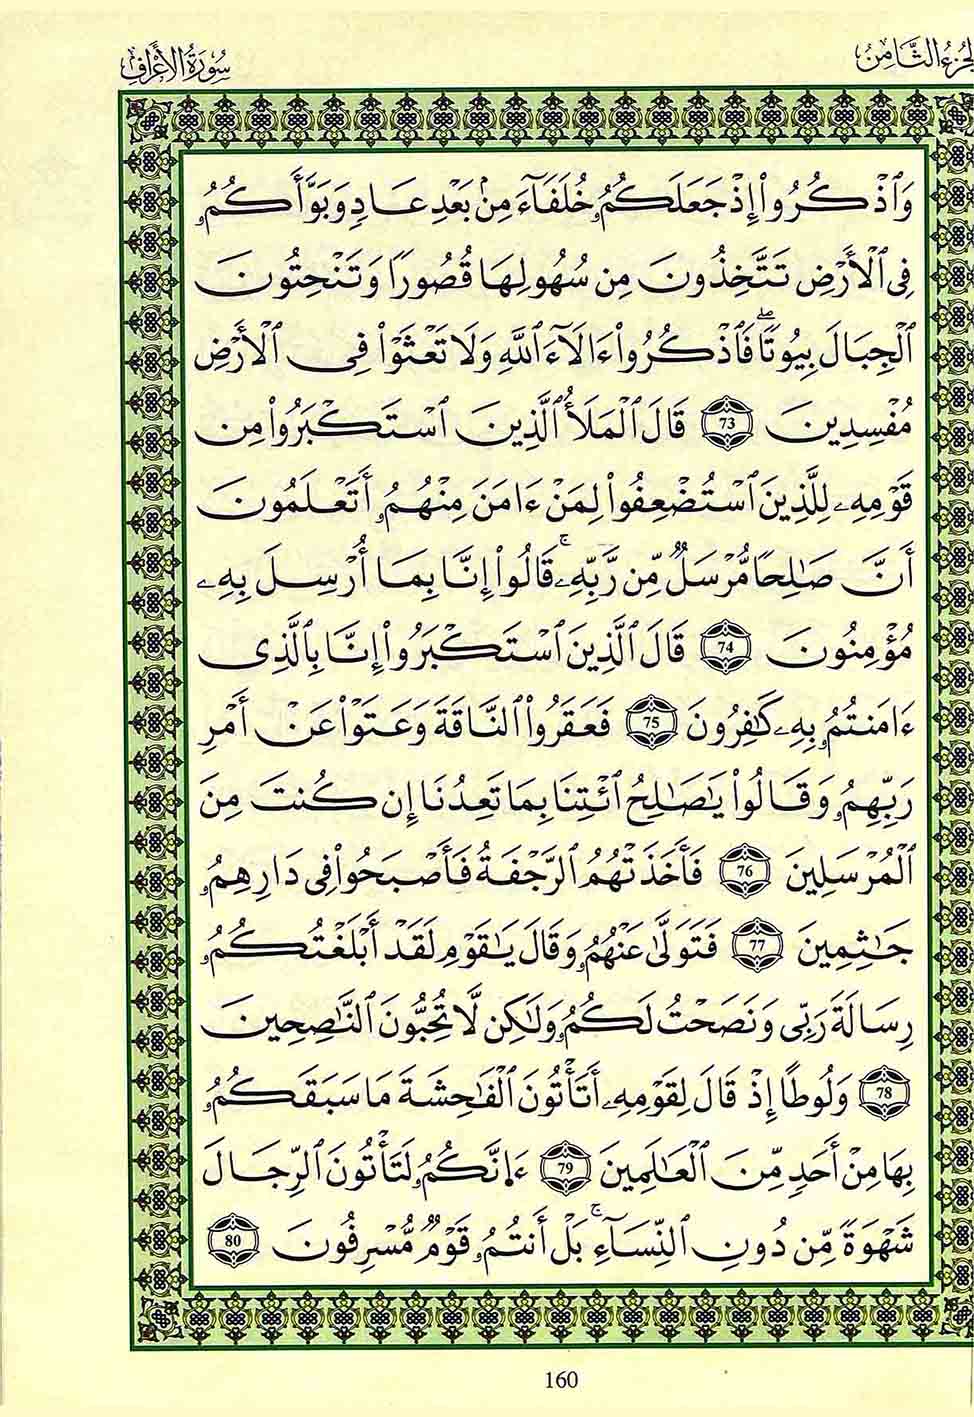 الجزء الثامن
سورة الأعراف
وَٱذْكُرُوا۟ إِذْ جَعَلَكُمُۥ خُلَفَآءَ مِنۢ بَعْدِ عَادٍ وَبَوَّأَكُمُۥ
فِى ٱلْأَرْضِ تَتَّخِذُونَ مِن سُهُولِهَا قُصُورًا وَتَنْحِتُونَ
ٱلْجِبَالَ بِيُوتًا ۖ فَٱذْكُرُوا۟ ءَالَآءَ ٱللَّهِ وَلَا تَعْثَوْا۟ فِى ٱلْأَرْضِ
مُفْسِدِينَ 73 قَالَ ٱلْمَلَأُ ٱلَّذِينَ ٱسْتَكْبَرُوا۟ مِن
قَوْمِهِۦ لِلَّذِينَ ٱسْتُضْعِفُوا۟ لِمَنْ ءَامَنَ مِنْهُمُۥ أَتَعْلَمُونَ
أَنَّ صَـٰلِحًا مُّرْسَلٌ مِّن رَّبِّهِۦ ۚ قَالُوا۟ إِنَّا بِمَا أُرْسِلَ بِهِۦ
مُؤْمِنُونَ 74 قَالَ ٱلَّذِينَ ٱسْتَكْبَرُوا۟ إِنَّا بِٱلَّذِى
ءَامَنتُمُۥ بِهِۦ كَـٰفِرُونَ 75 فَعَقَرُوا۟ ٱلنَّاقَةَ وَعَتَوْا۟ عَنْ أَمْرِ
رَبِّهِمُۥ وَقَالُوا۟ يَـٰصَـٰلِحُ ٱئْتِنَا بِمَا تَعِدُنَا إِن كُنتَ مِنَ
ٱلْمُرْسَلِينَ 76 فَأَخَذَتْهُمُ ٱلرَّجْفَةُ فَأَصْبَحُوا۟ فِى دَارِهِمُۥ
جَـٰثِمِينَ 77 فَتَوَلَّىٰ عَنْهُمُۥ وَقَالَ يَـٰقَوْمِ لَقَدْ أَبْلَغْتُكُمُۥ
رِسَالَةَ رَبِّى وَنَصَحْتُ لَكُمُۥ وَلَـٰكِن لَّا تُحِبُّونَ ٱلنَّـٰصِحِينَ
78 وَلُوطًا إِذْ قَالَ لِقَوْمِهِۦ أَتَأْتُونَ ٱلْفَـٰحِشَةَ مَا سَبَقَكُمُۥ
بِهَا مِنْ أَحَدٍ مِّنَ ٱلْعَـٰلَمِينَ 79 ءَا۬نَّكُمُۥ لَتَأْتُونَ ٱلرِّجَالَ
شَهْوَةً مِّن دُونِ ٱلنِّسَآءِ ۚ بَلْ أَنتُمُۥ قَوْمٌ مُّسْرِفُونَ 80
160